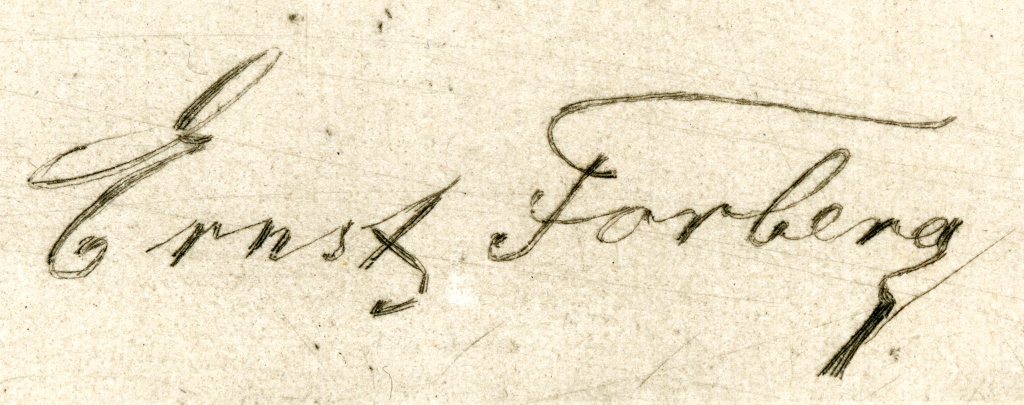 Ernst Forberg